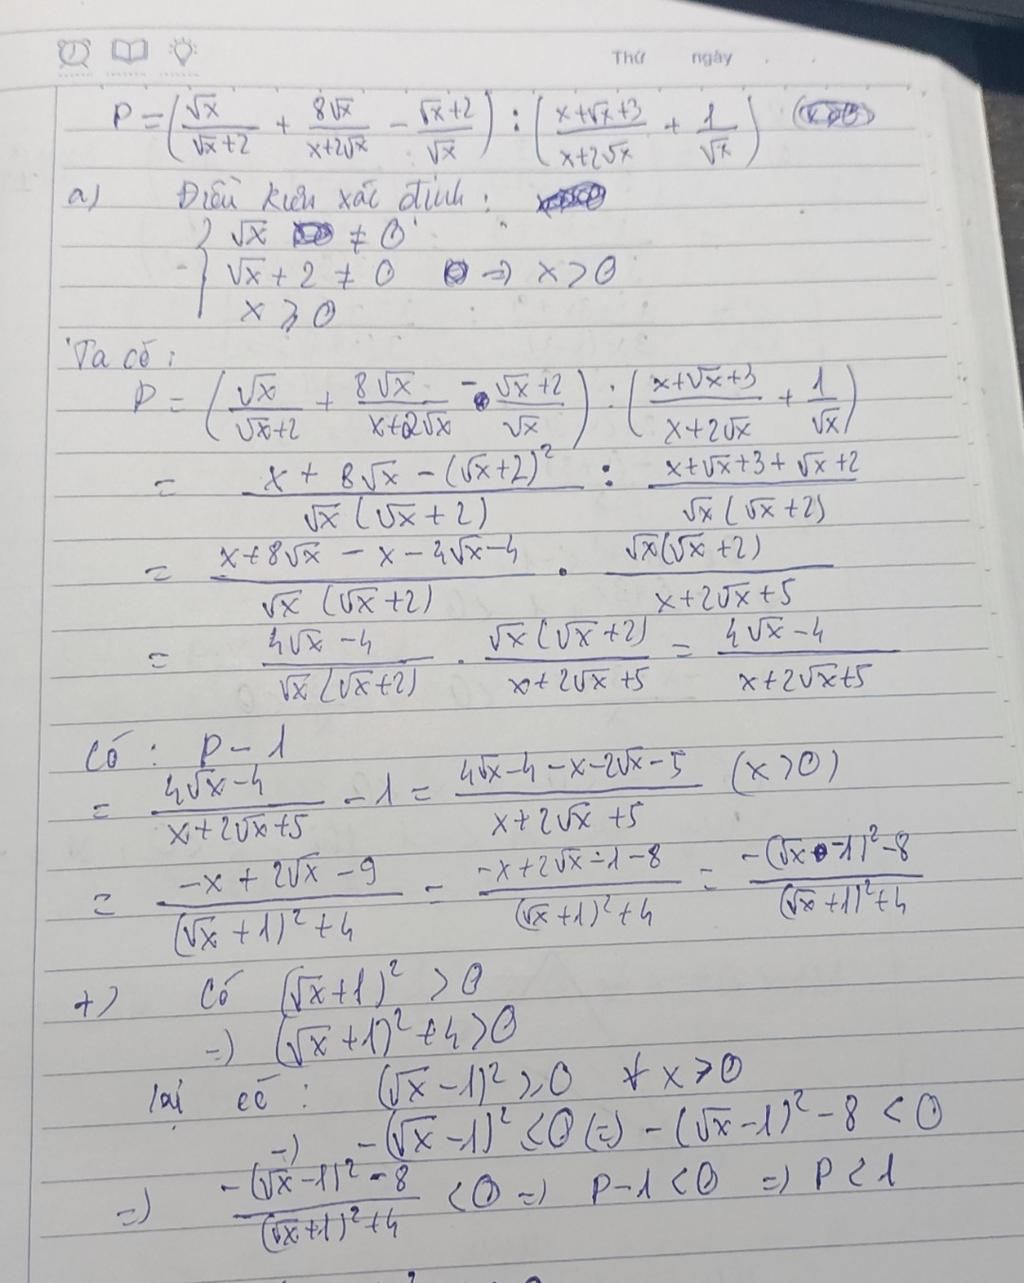 Thứ ngày
P = (√x/(√x+2) + 8√x/(x+2√x) − (√x+2)/√x) : ((x+√x+3)/(x+2√x) + 1/√x)
a) Điều kiện xác định :
√x ≠ 0
√x + 2 ≠ 0 => x > 0
x ⩾ 0
Ta có :
P = (√x/(√x+2) + 8√x/(x+2√x) − (√x+2)/√x) : ((x+√x+3)/(x+2√x) + 1/√x)
= (x + 8√x − (√x+2)²)/(√x(√x+2)) : (x+√x+3+√x+2)/(√x(√x+2))
= (x+8√x − x − 4√x−4)/(√x(√x+2)) . (√x(√x+2))/(x+2√x+5)
= (4√x −4)/(√x(√x+2)) . (√x(√x+2))/(x+2√x+5) = (4√x−4)/(x+2√x+5)
Có : P − 1
= (4√x−4)/(x+2√x+5) − 1 = (4√x−4−x−2√x−5)/(x+2√x+5) (x>0)
= (−x + 2√x −9)/((√x+1)²+4) = (−x+2√x−1−8)/((√x+1)²+4) = (−(√x−1)²−8)/((√x+1)²+4)
+) Có (√x+1)² > 0
=) (√x+1)² +4 > 0
lại có : (√x−1)² ⩾ 0 ∀ x > 0
=) −(√x−1)² ⩽ 0 (=) −(√x−1)² − 8 < 0
=) (−(√x−1)² − 8)/((√x+1)²+4) < 0 =) P−1 < 0 =) P < 1